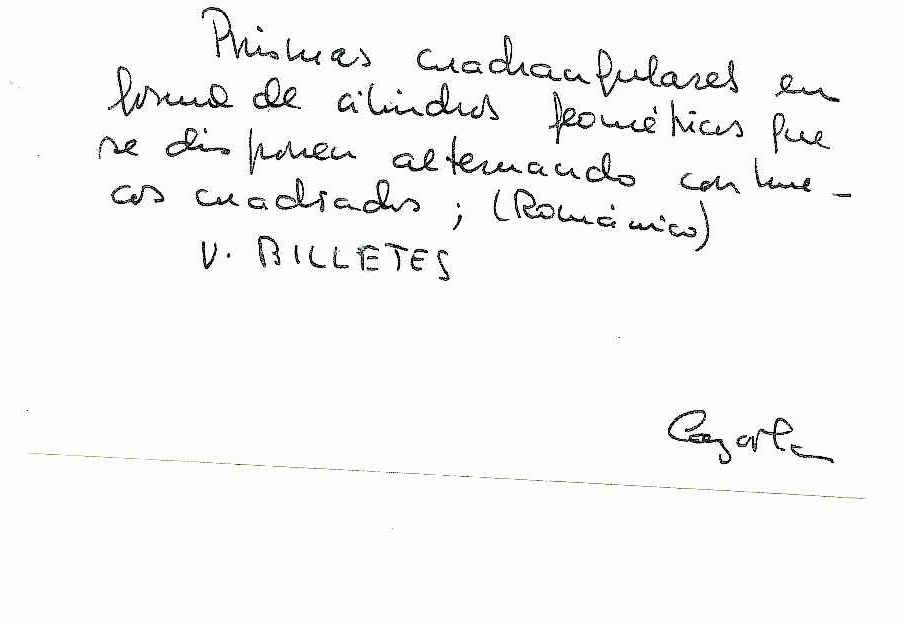 Prismas cuadrangulares en
forma de cilindros geométricos que
se disponen alternando con hue-
cos cuadrados; (Románico)
V. BILLETES
Cazorla